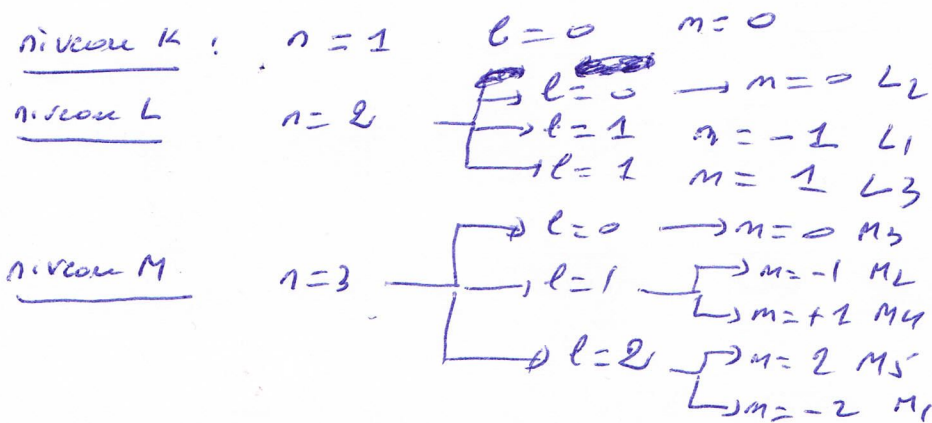 niveau K : n = 1 l = 0 m = 0
niveau L n = 2 l = 0 → m = 0 L2
l = 1 m = -1 L1
l = 1 m = 1 L3
l = 0 → m = 0 M3
niveau M n = 3 l = 1 m = -1 M2
m = +1 M4
l = 2 m = 2 M5
m = -2 M1